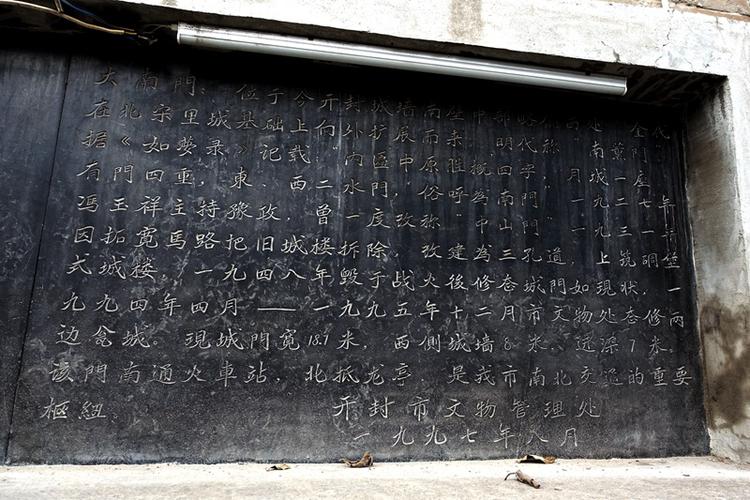 大南門:位于今开封城墙南壁中部 处 金代
在北宋里城基础上向外扩展而来 明代称"南薰門"
据《如夢录》記載 内區中原 胜概四字 南城門座
有門四重,東西二水門,俗呼為南門 "月城"
馮玉祥主持豫政,曾一度改称"中山門" 一九二七年
因拓寬馬路把旧城楼拆除改建為三孔門道, 上
式城楼,一九四八年毁于战火後 城門如現状 一
九九四年四月——一九九五年十二月市文物处 修 两
边瓮城。現城門寬18.7米,两側城墙8米 深7米。
该門南通火車站,北抵龙亭,是我市南北交通的重要
枢紐。 开封市文物管理处
一九九七年八月